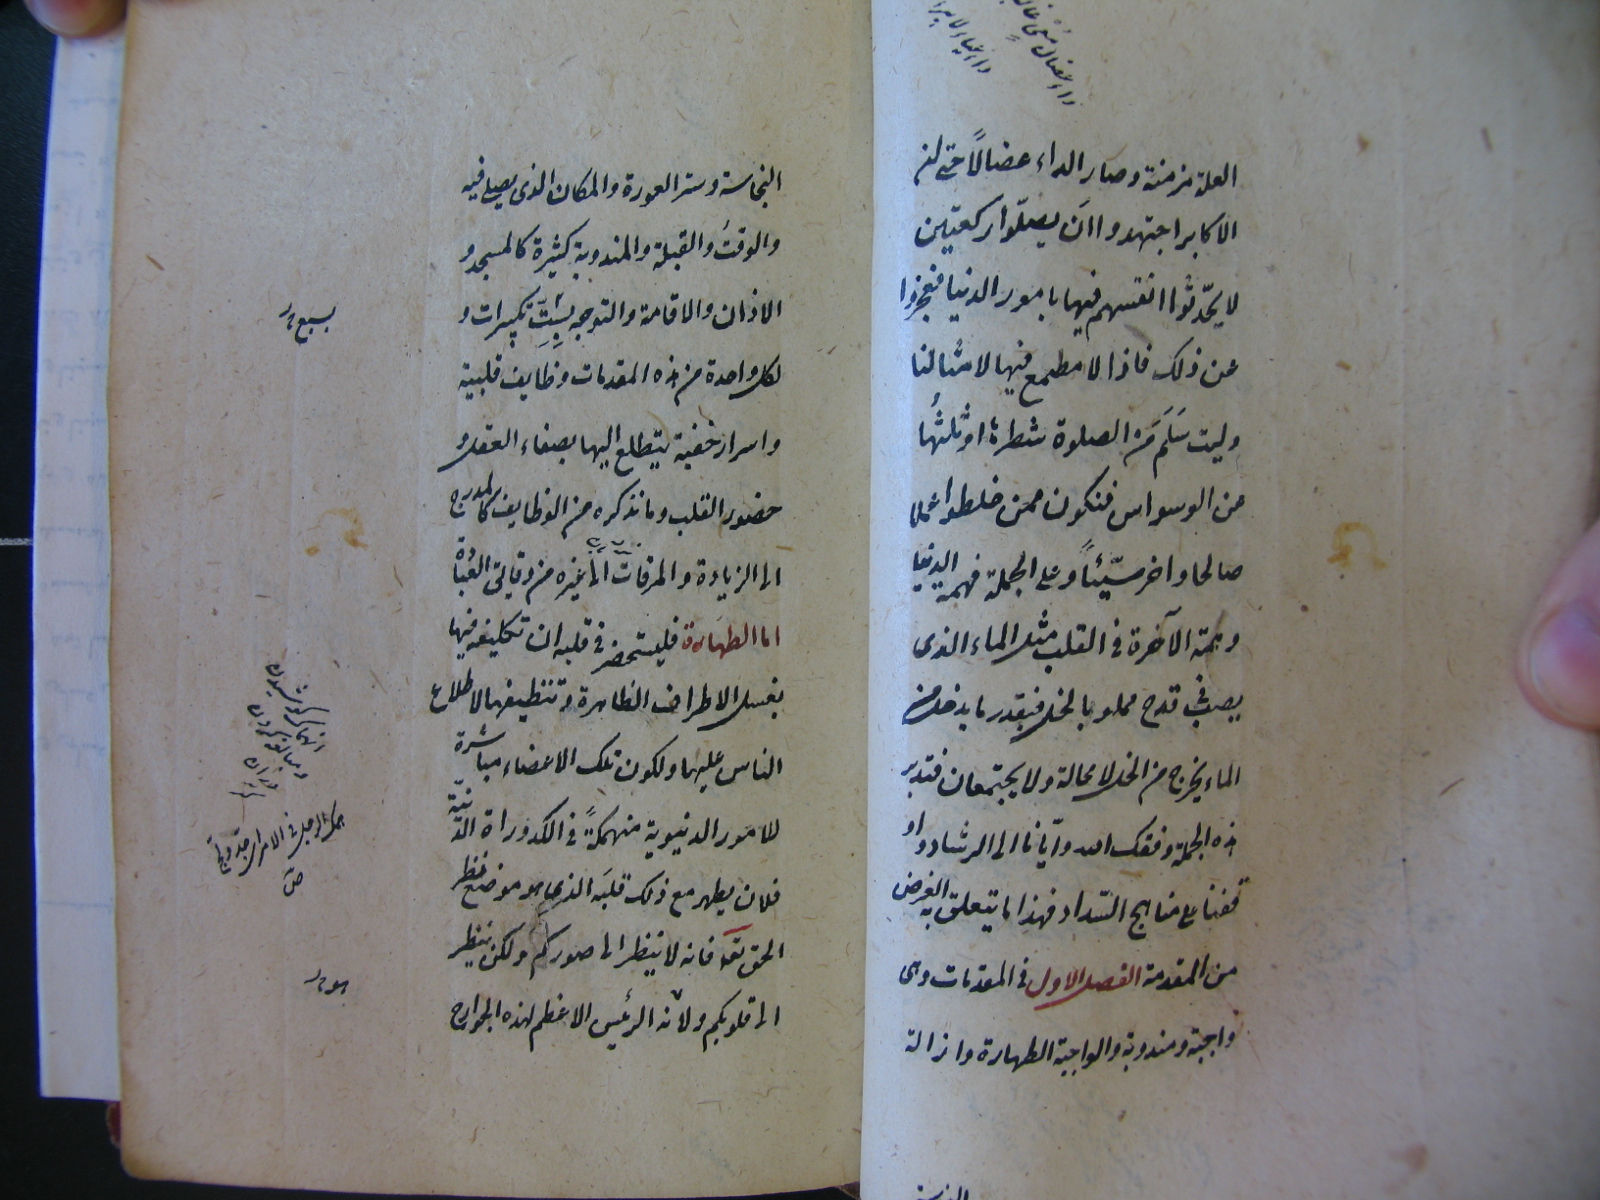 العلة مزمنة وصار الداء عضالاً حتى ان
الاكابر اجتهدوا ان يصلّوا ركعتين
لا يحدّثوا انفسهم فيها بامور الدنيا فعجزوا
عن ذلك فاذا لا مطمع فيها لامثالنا
وليت سَلَم مَن الصلوة شطرها او ثلثُها
من الوسواس فنكون ممن خلطوا عملا
صالحا واخر سيّئاً وعلى الجملة فهمة الدنيا
وهمة الآخرة في القلب مثل الماء الذى
يصب في قدح مملو بالخل فبقدر ما يدخل من
الماء يخرج من الخل لا محالة ولا يجتمعان فتدبر
هذه الجملة وفقك الله وايّانا الى الرشاد و او
قفنا على مناهج السّداد فهذا ما يتعلق به الغرض
من المقدمة الفصل الاول في المقدمات وهى
واجبة ومندوبة والواجبة الطهارة وازالة
النجاسة وستر العورة والمكان الذى يصلى فيه
والوقتُ والقبلة والمندوبة كثيرة كالمسجد و
الاذان والاقامة والتوجه بسِتِّ تكبيرات و
بسبع
لكل واحدة من هذه المقدمات وظايف قلبية
واسرار خفية يتطلع اليها بصفاء العقل و
حضور القلب وما نذكره من الوظايف كالمدرج
الى الزيادة والمرقات الى غيره من دقايق العبادة
اما الطهارة فليستحضر في قلبه ان تكليفه فيها
بغسل الاطراف الظاهرة وتنظيفها لاطلاع
الناس عليها ولكون تلك الاعضاء مباشرة
للامور الدنيوية منهمكةً في الكدورات الدّنيّة
انهمك الرجل في الامر اى جدّ ولجّ
فلان يطهر مع ذلك قلبَه الذى هو موضع نظر
الحق تعالى فانه لا ينظر الى صوركم ولكن ينظر
الى قلوبكم ولانه الرئيس الاعظم لهذه الجوارح